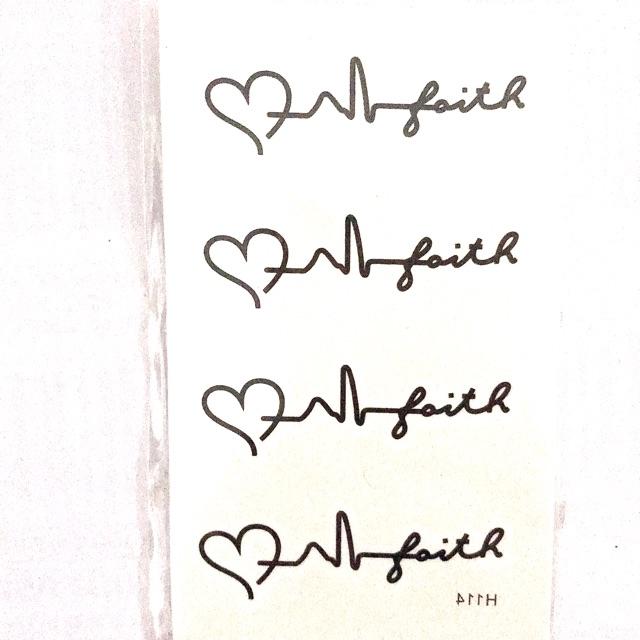 faith
faith
faith
faith
H114